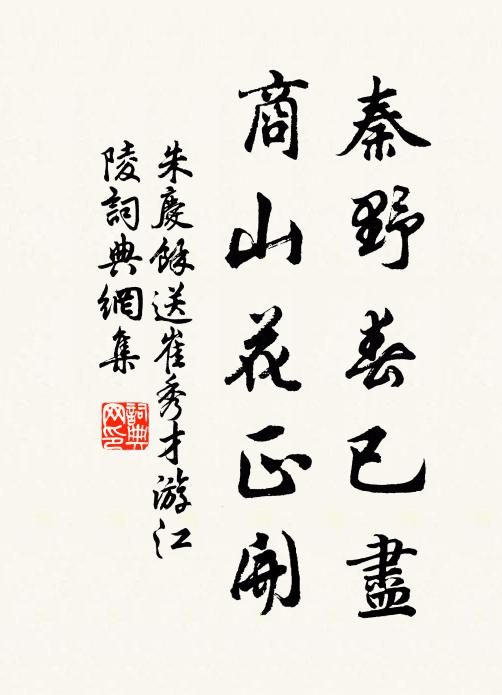 秦野春已盡
商山花正開
朱慶餘送崔秀才游江
陵詞典網集
詞典网印